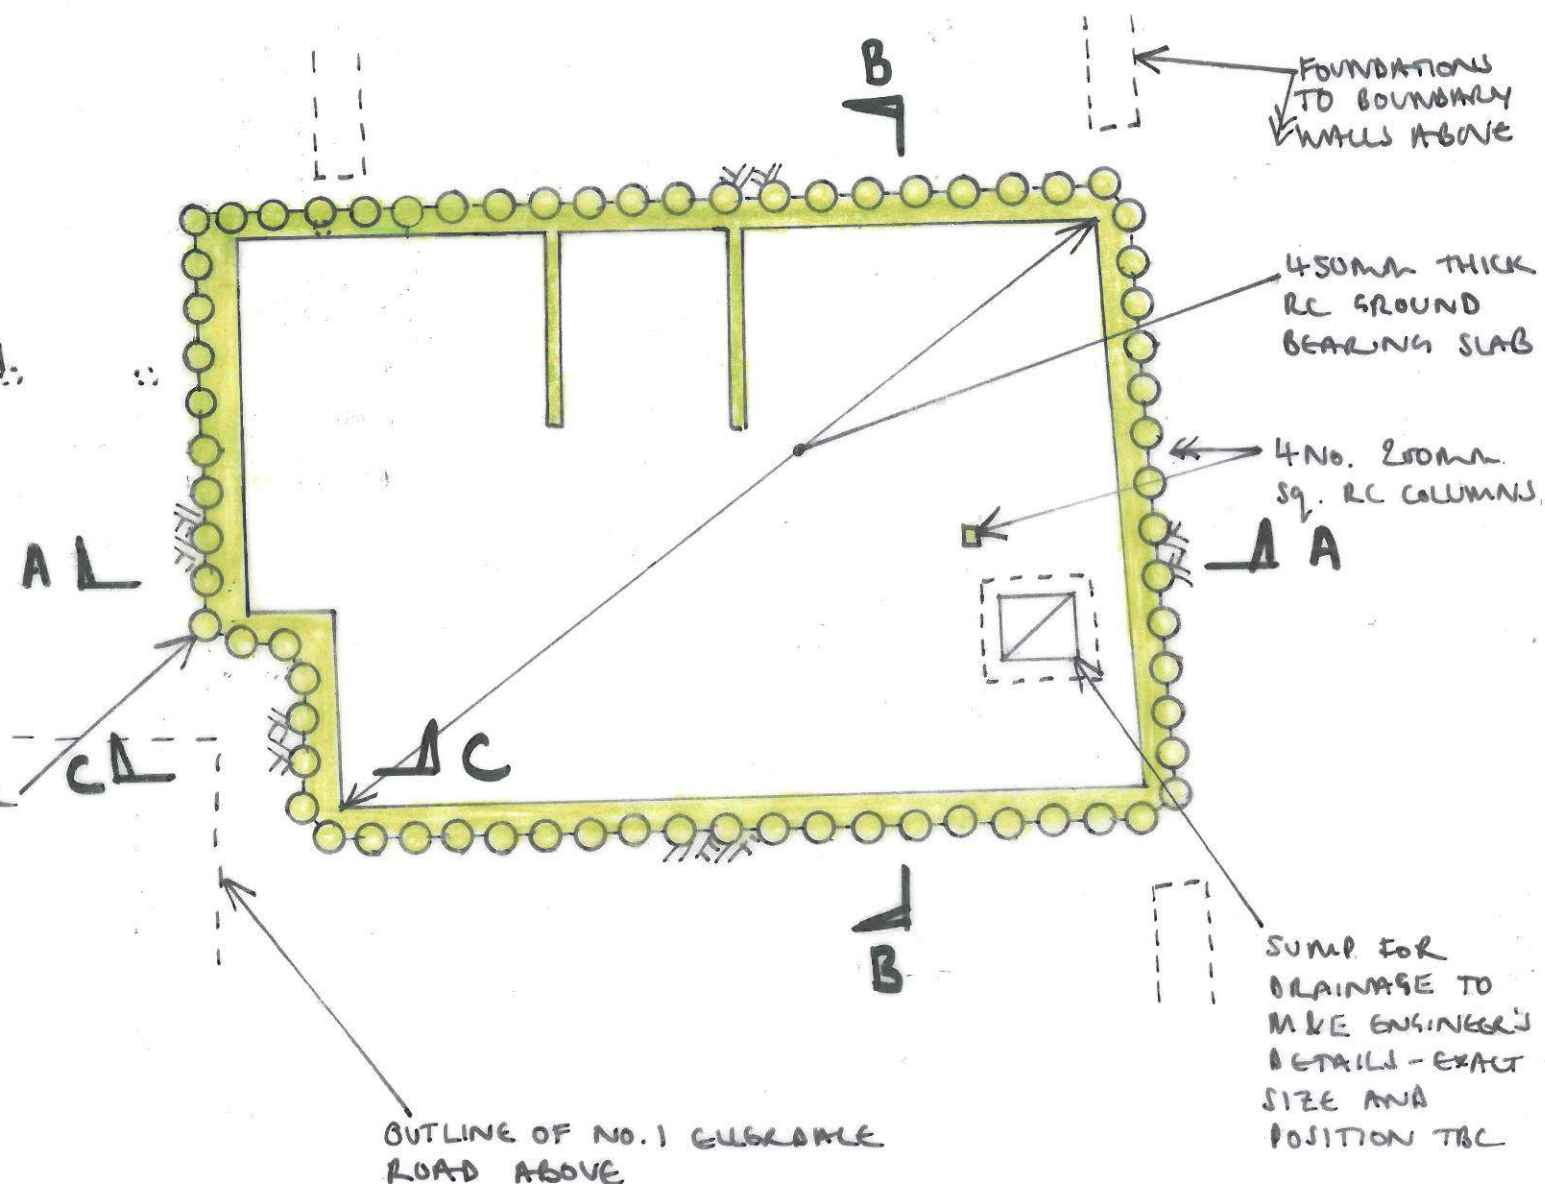 B
FOUNDATIONS
TO BOUNDARY
WALLS ABOVE
450mm THICK
RC GROUND
BEARING SLAB
4 No. 200mm
Sq. RC COLUMNS
A
A
C
C
B
SUMP FOR
DRAINAGE TO
M&E ENGINEER'S
DETAILS - EXACT
SIZE AND
POSITION TBC
OUTLINE OF NO. 1 ELLERDALE
ROAD ABOVE